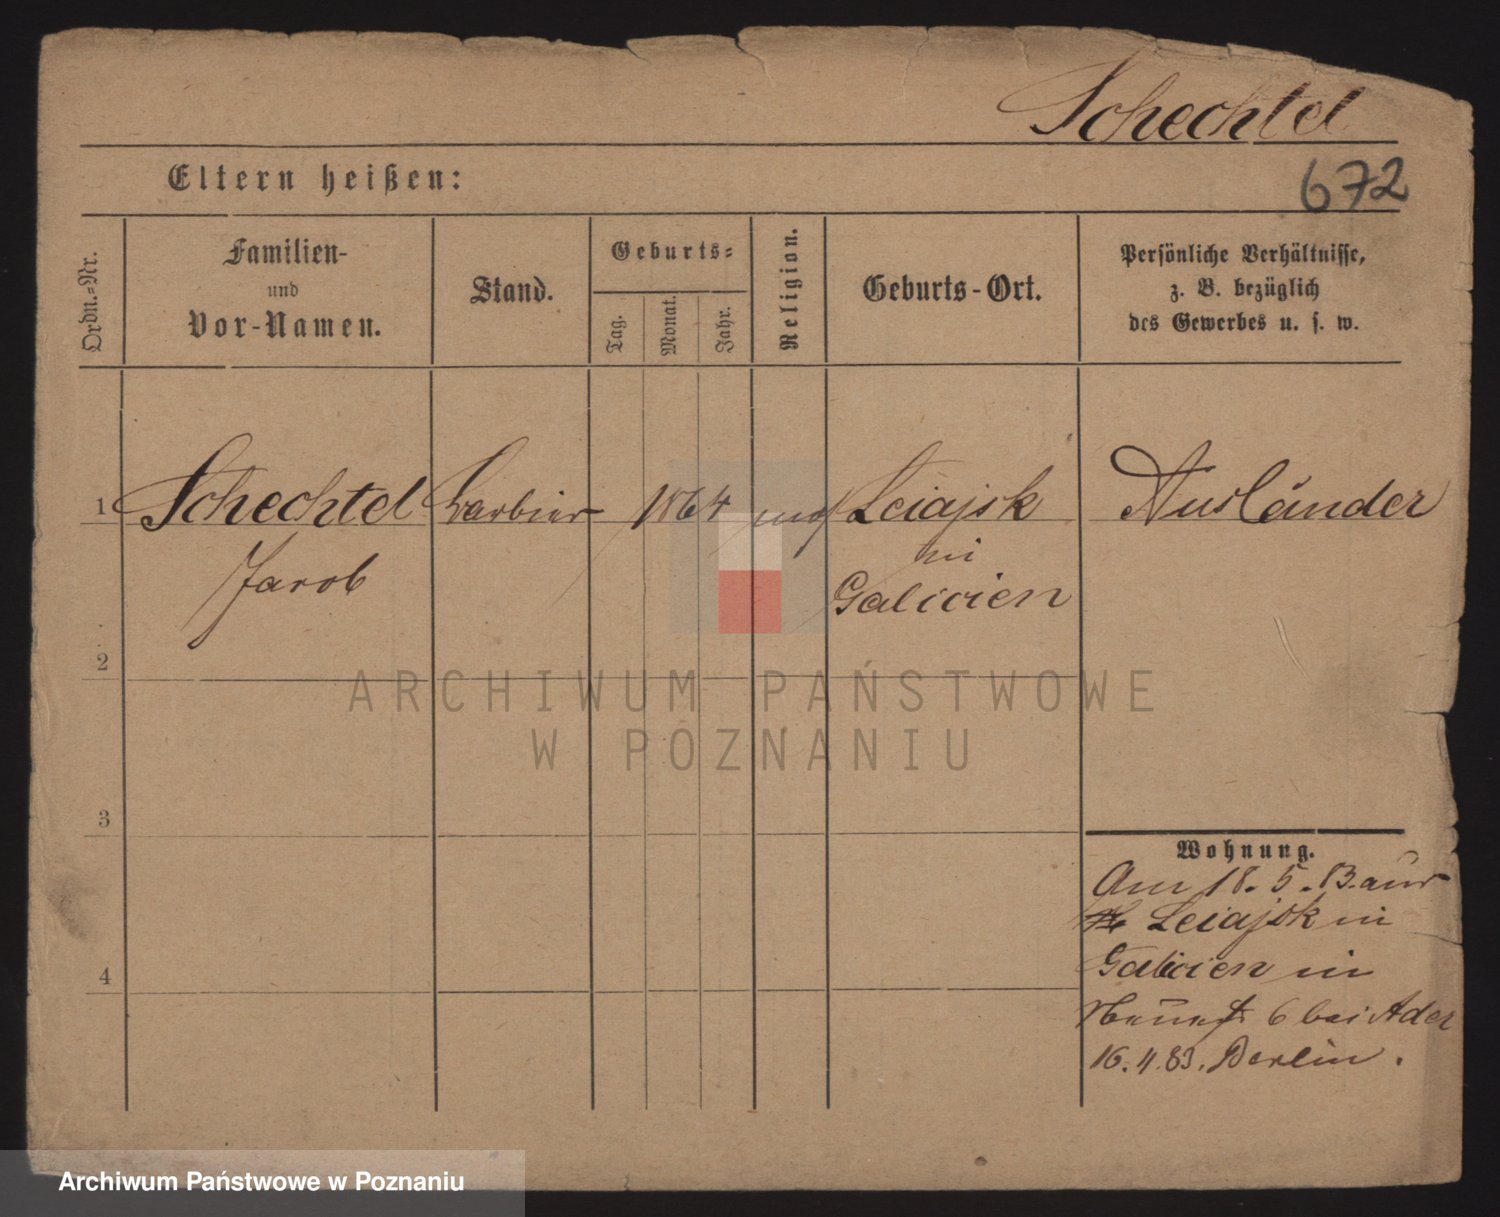 Schechtel
Eltern heißen:
672
Ordn.-Nr.
Familien-
und
Vor-Namen.
Stand.
Geburts-
Tag.
Monat.
Jahr.
Religion.
Geburts-Ort.
Persönliche Verhältnisse,
z. B. bezüglich
des Gewerbes u. s. w.
1 Schechtel Barbier 1864 mos Leiajsk Ausländer
Jacob
in
Galicien
2
3
4
Wohnung.
Am 18. 5.
Leiajsk in
Galicien in
6 bei Ader
16. 4. 83. Berlin.
ARCHIWUM PAŃSTWOWE
W POZNANIU
Archiwum Państwowe w Poznaniu